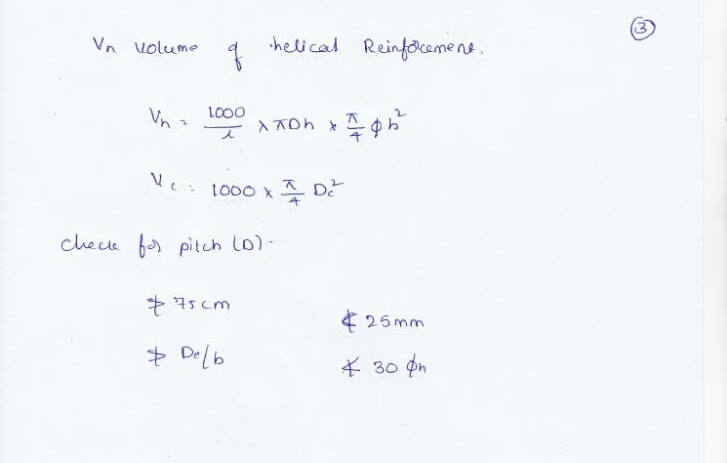 ③
Vn volume of helical Reinforcement.
Vn = 1000/s × πDh × π/4 φh²
Vc = 1000 × π/4 Dc²
check for pitch (D).
≯ 75cm
≮ 25mm
≯ Dc/6
≮ 30 φh